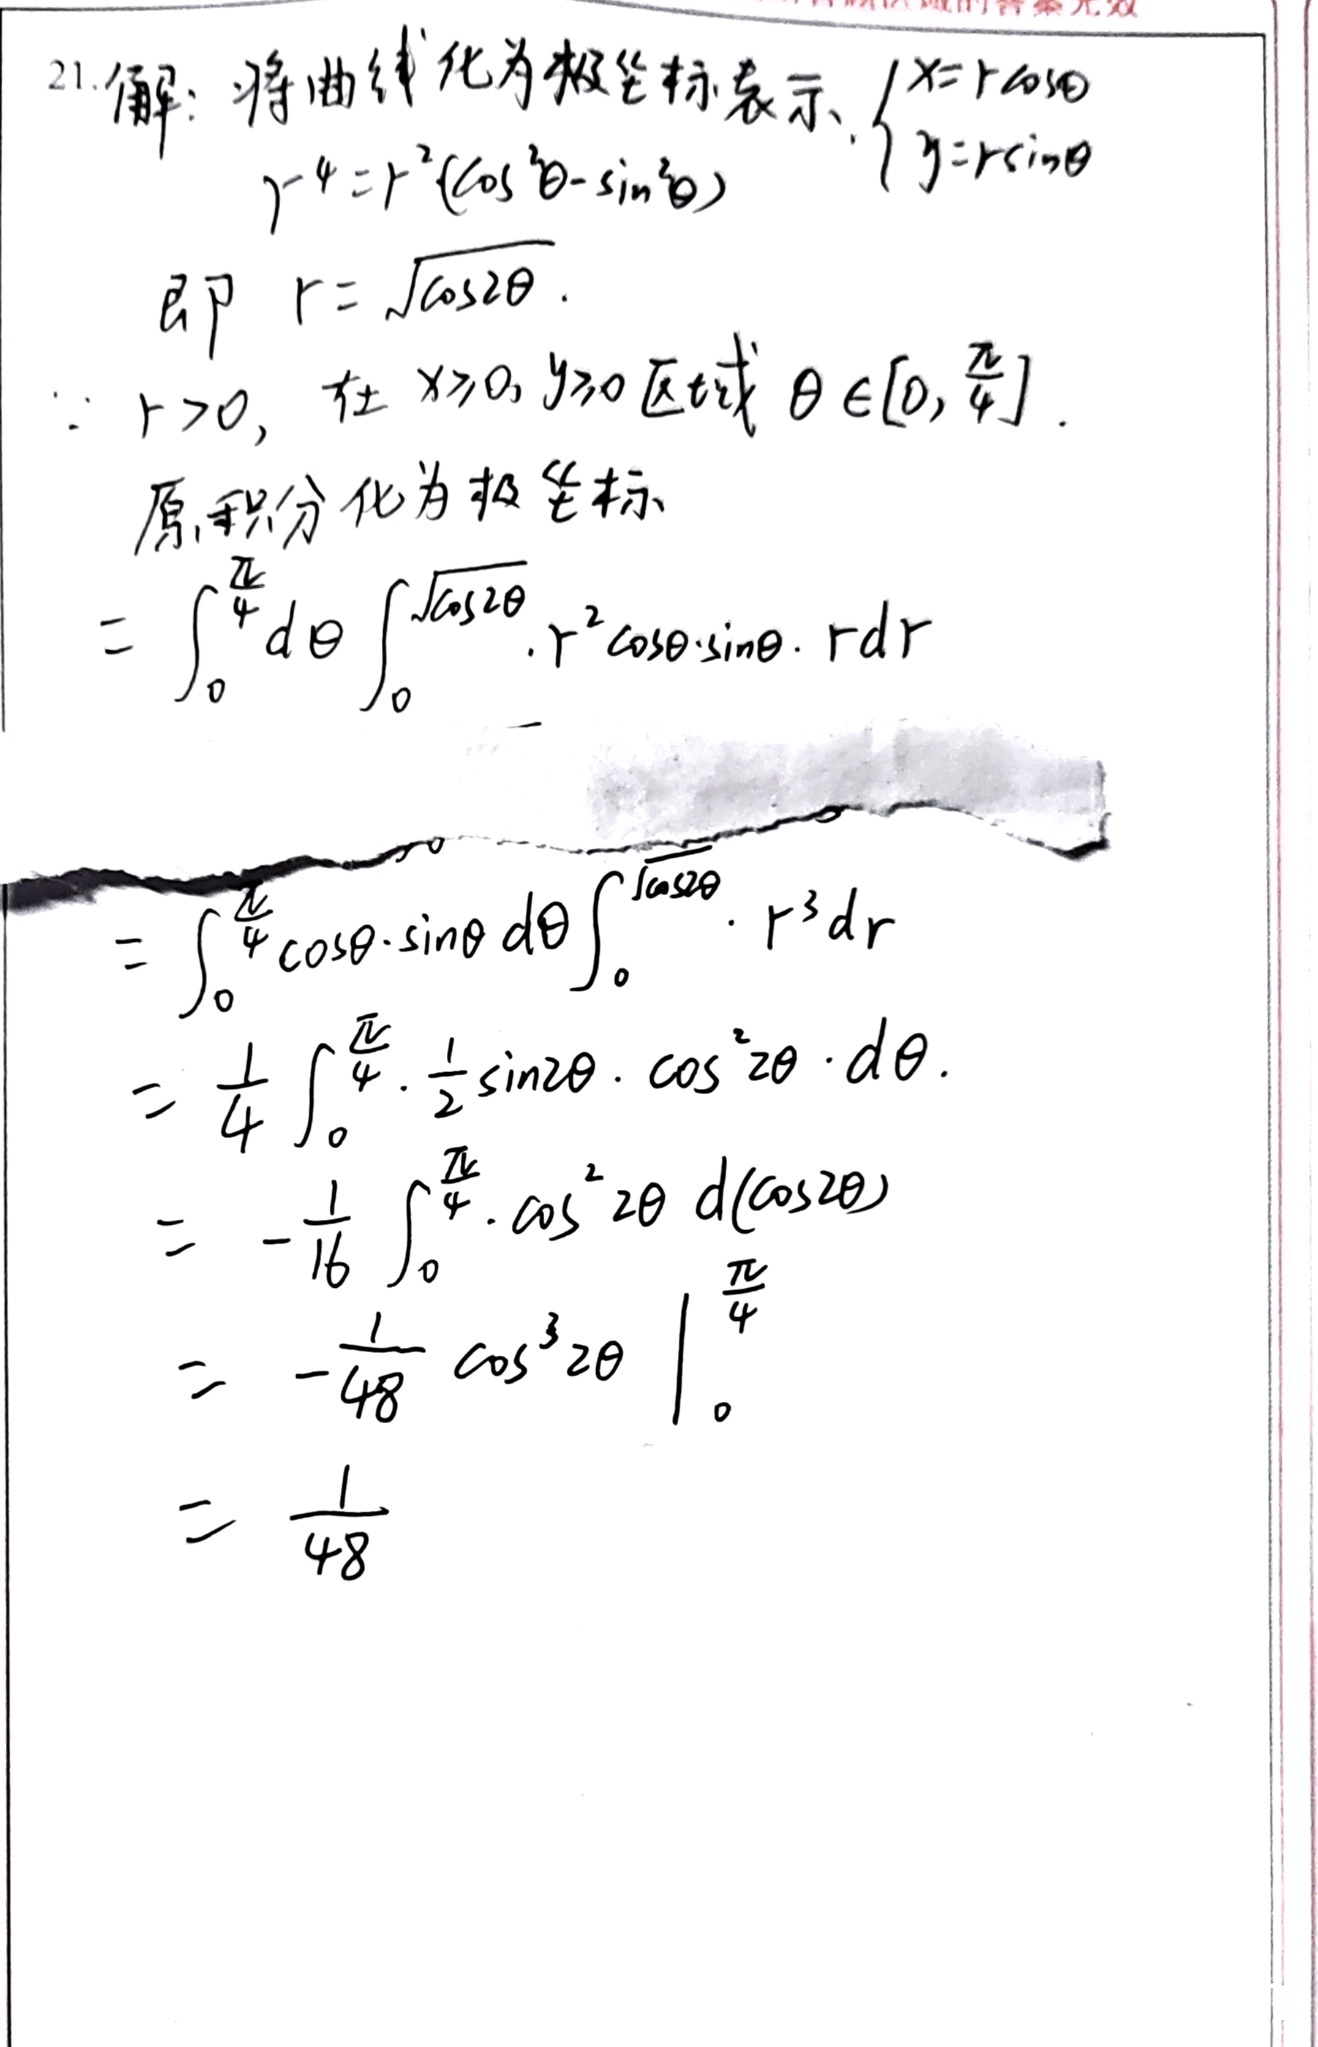 21.解：将曲线化为极坐标表示. { x=rcosθ
y=rsinθ
r⁴=r²(cos²θ-sin²θ)
即 r=√cos2θ.
∵ r>0, 在 x≥0, y≥0 区域 θ∈[0, π/4].
原积分化为极坐标
= ∫₀^(π/4) dθ ∫₀^(√cos2θ) ·r²cosθ·sinθ·rdr
= ∫₀^(π/4) cosθ·sinθ dθ ∫₀^(√cos2θ) · r³dr
= 1/4 ∫₀^(π/4) · 1/2 sin2θ · cos²2θ · dθ.
= -1/16 ∫₀^(π/4) · cos²2θ d(cos2θ)
= -1/48 cos³2θ |₀^(π/4)
= 1/48